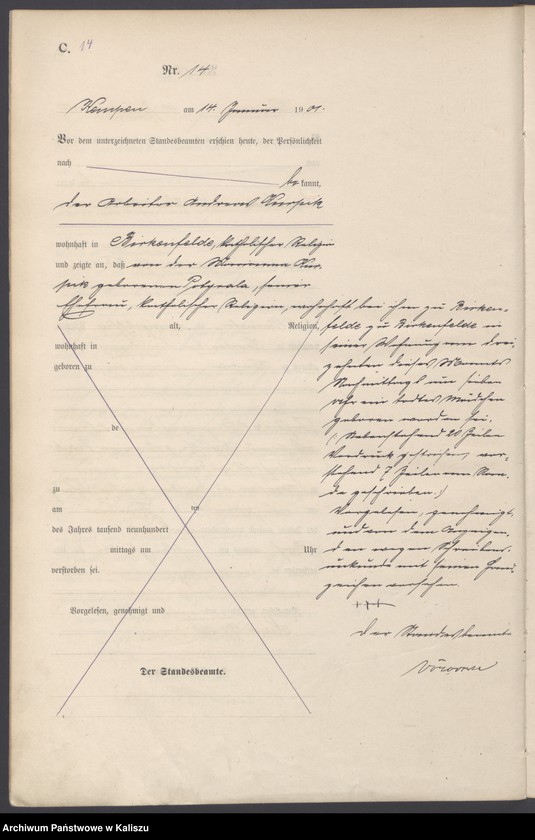 C. 14
Nr. 14
Kempen am 14. Januar 1901.
Vor dem unterzeichneten Standesbeamten erschien heute, der Persönlichkeit
nach
bekannt,
der Arbeiter Andreas
wohnhaft in Birkenfelde, katholischer Religion
und zeigte an, daß von der Marianna
geborenen seiner
Ehefrau, katholischer Religion, wohnhaft bei ihm zu Birken-
alt, Religion,
wohnhaft in
geboren zu
de
zu
am ten
des Jahres tausend neunhundert
mittags um Uhr
verstorben sei.
Vorgelesen, genehmigt und
Der Standesbeamte.
felde zu Birkenfelde in
seiner Wohnung am drei-
zehnten dieses Monats
Nachmittags um sieben
Uhr ein todtes Mädchen
geboren worden sei.
(Nebenstehend 20 Zeilen
Vordruck gestrichen, vor-
stehend 7 Zeilen am Ran-
de geschrieben.)
Vorgelesen, genehmigt
und von dem Anzeigen-
den wegen Schreibens-
unkunde mit seinem Hand-
zeichen versehen.
+++
Der Standesbeamte
Archiwum Państwowe w Kaliszu